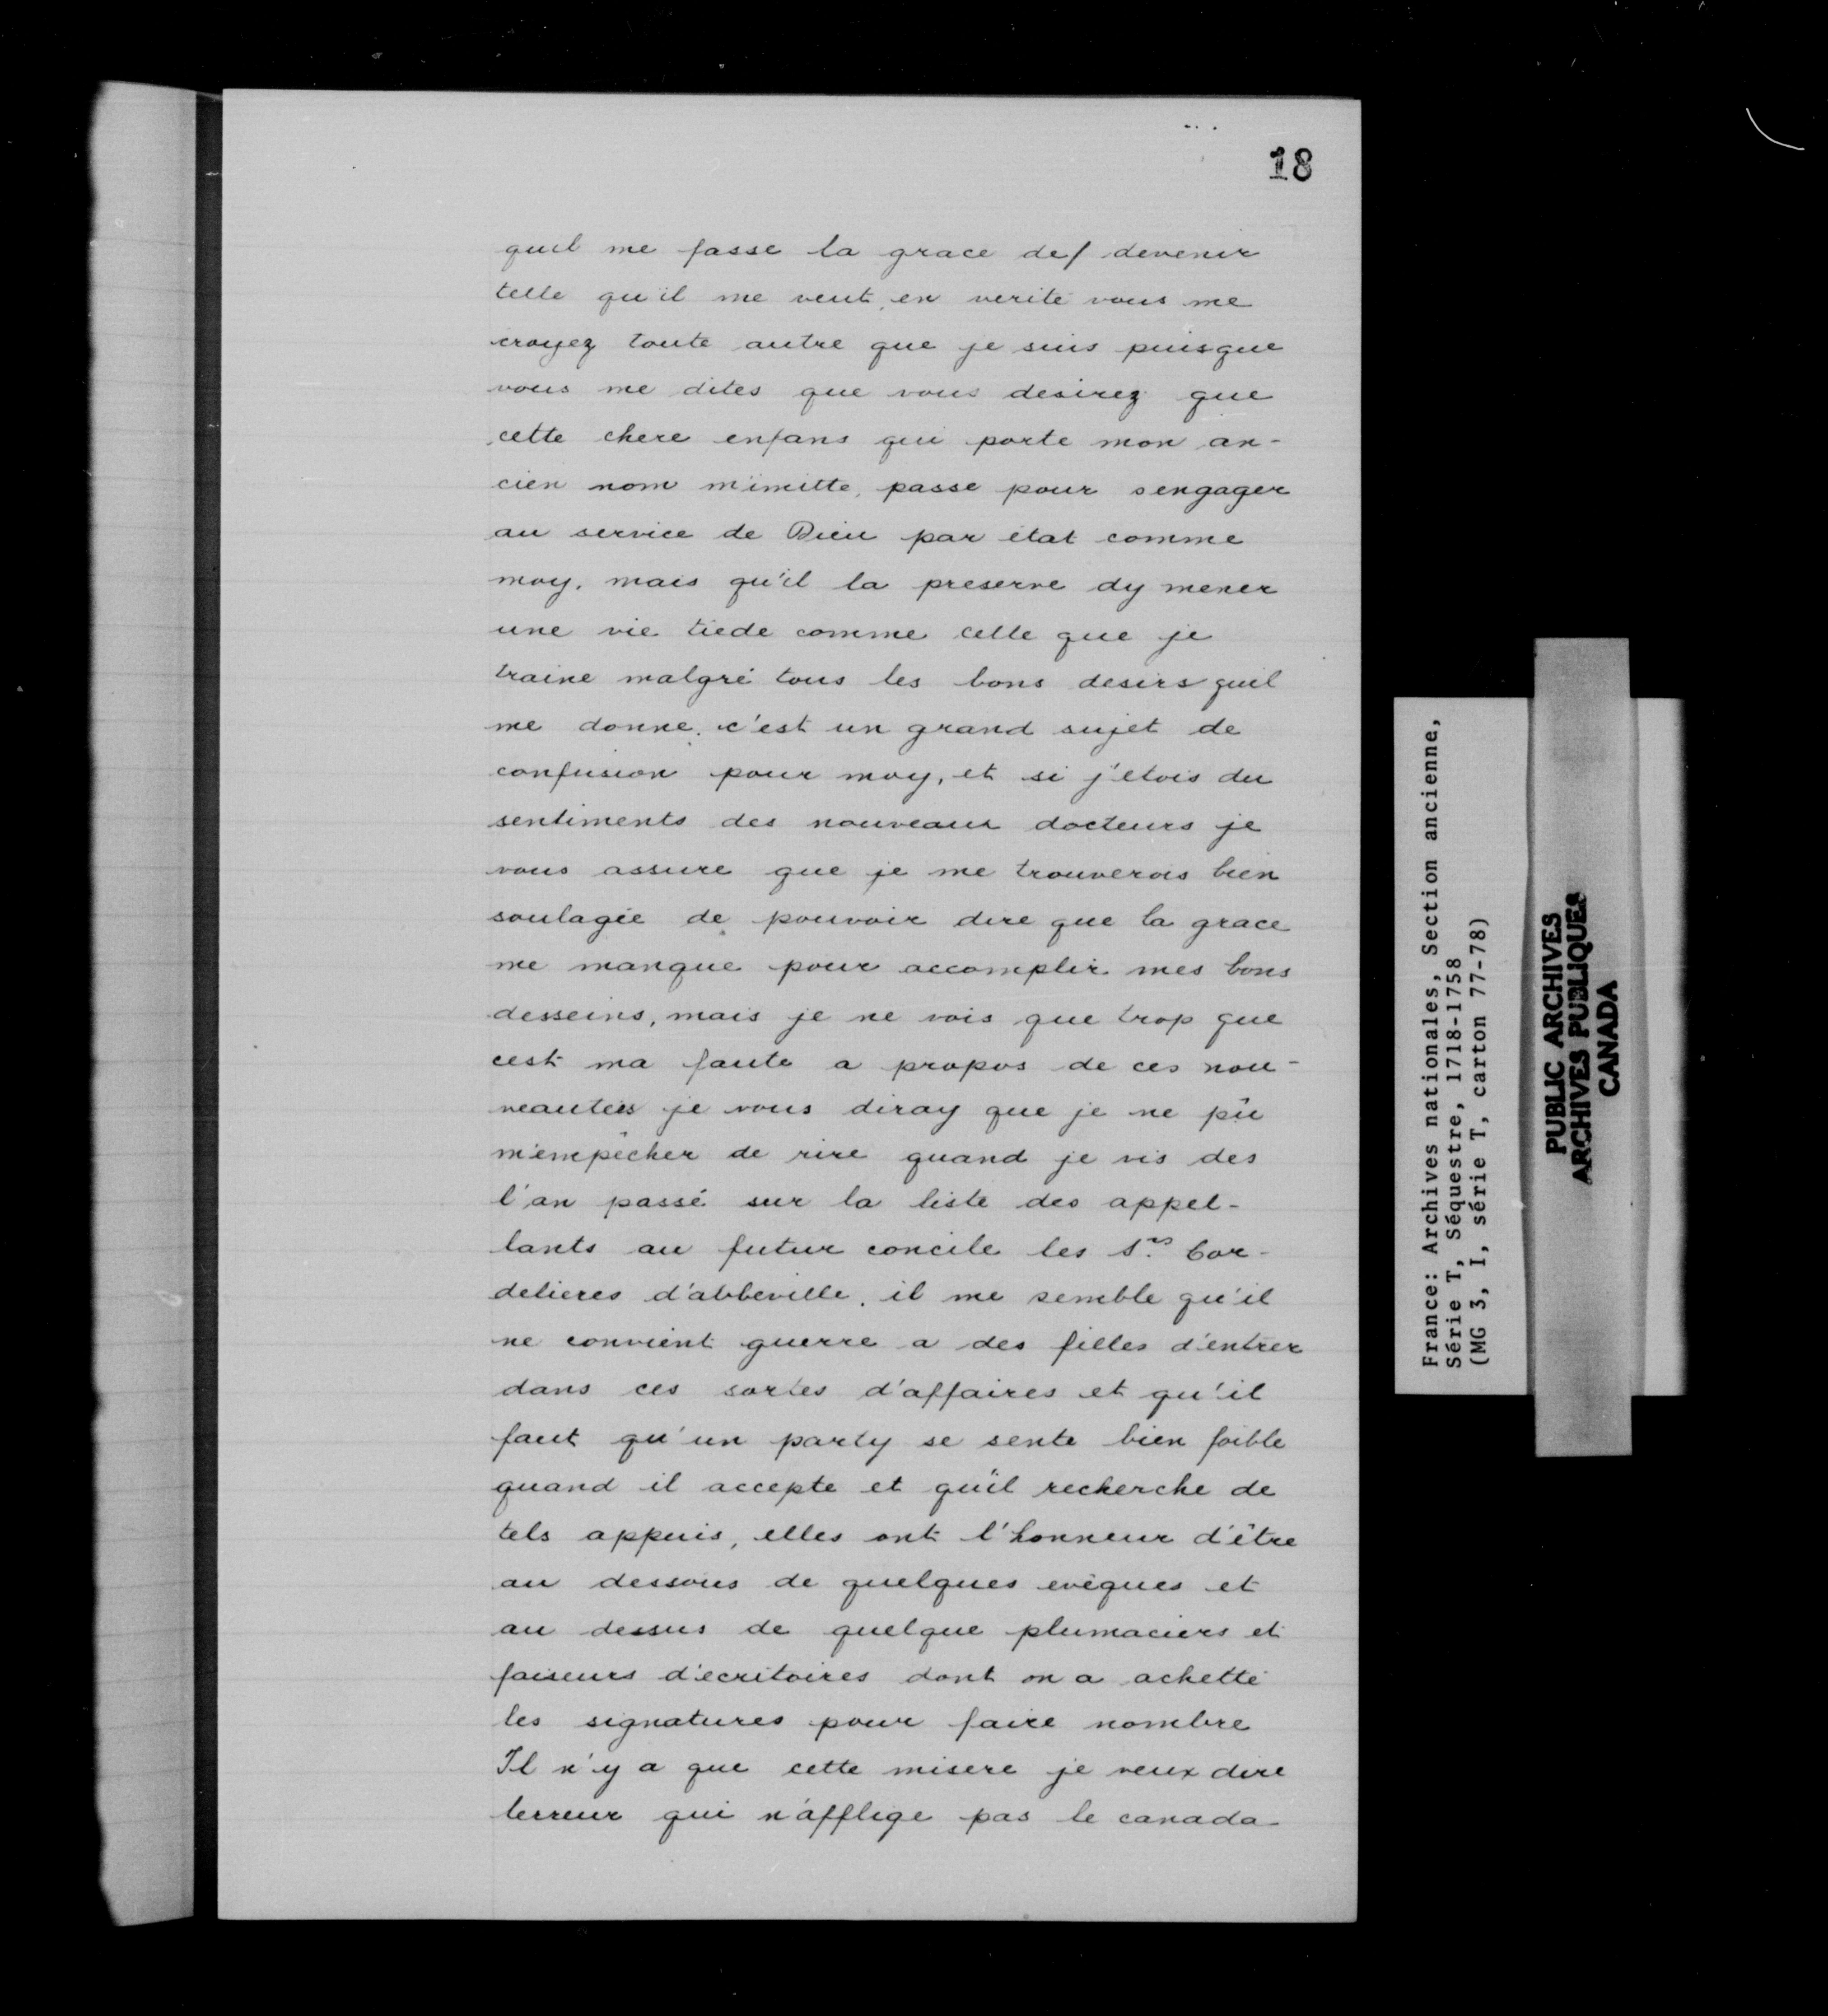 18
quil me fasse la grace de/ devenir
telle qu'il me veut, en verité vous me
croyez toute autre que je suis puisque
vous me dites que vous desirez que
cette chere enfans qui porte mon an-
cien nom m'imitte, passe pour s'engager
au service de Dieu par état comme
moy, mais qu'il la preserve dy mener
une vie tiede comme celle que je
traine malgré tous les bons desirs quil
me donne. c'est un grand sujet de
confusion pour moy, et si j'etois du
sentiments des nouveaux docteurs je
vous assure que je me trouverois bien
soulagée de pouvoir dire que la grace
me manque pour accomplir mes bons
desseins, mais je ne vois que trop que
cest ma faute a propos de ces nou-
veautées je vous diray que je ne pû
m'empêcher de rire quand je vis des
l'an passé sur la liste des appel-
lants au futur concile les Srs Cor-
delieres d'abbeville, il me semble qu'il
ne convient guerre a des filles d'entrer
dans ces sortes d'affaires et qu'il
faut qu'un party se sente bien foible
quand il accepte et qu'il recherche de
tels appuis, elles ont l'honneur d'être
au dessous de quelques evêques et
au dessus de quelque plumaciers et
faiseurs d'ecritoires dont on a achetté
les signatures pour faire nombre
Il n'y a que cette misere je veux dire
lerreur qui n'afflige pas le canada
France: Archives nationales, Section ancienne,
Série T, Séquestre, 1718-1758
(MG 3, I, série T, carton 77-78)
PUBLIC ARCHIVES
ARCHIVES PUBLIQUES
CANADA